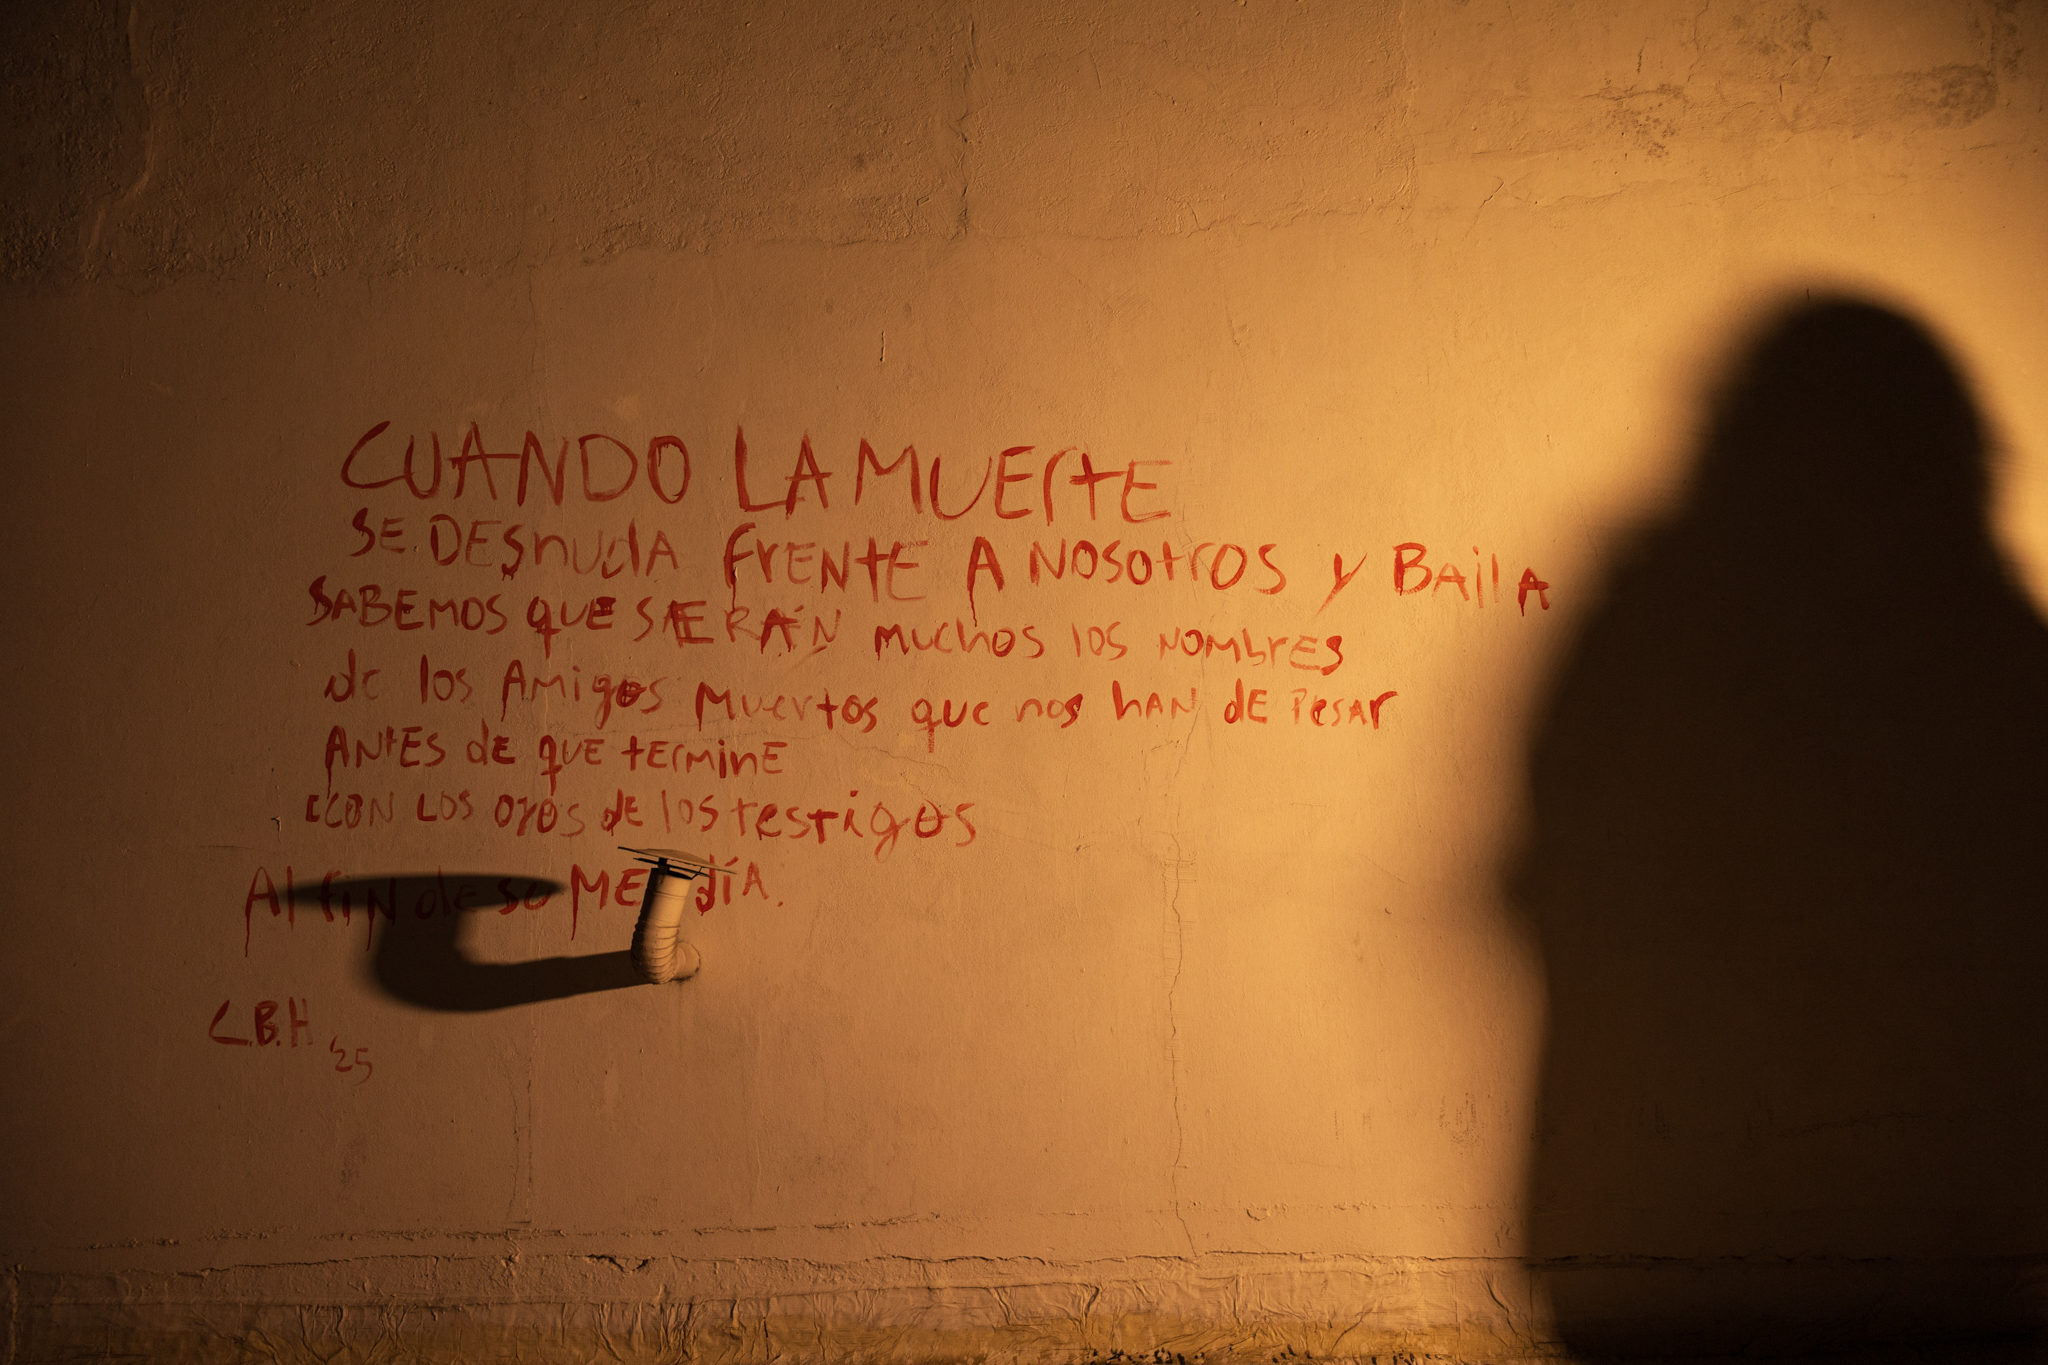 CUANDO LA MUErtE
SE DESnUdA FrENtE A NOSOtrOS Y BAilA
SABEMOS QUE SERÁN muchos los NOMbrES
de los Amigos Muertos que nos hAN dE PesAr
ANtES dE qUE tErminE
CON LOS OJOS dE los testigos
Al fiN de su
C.B.H '25